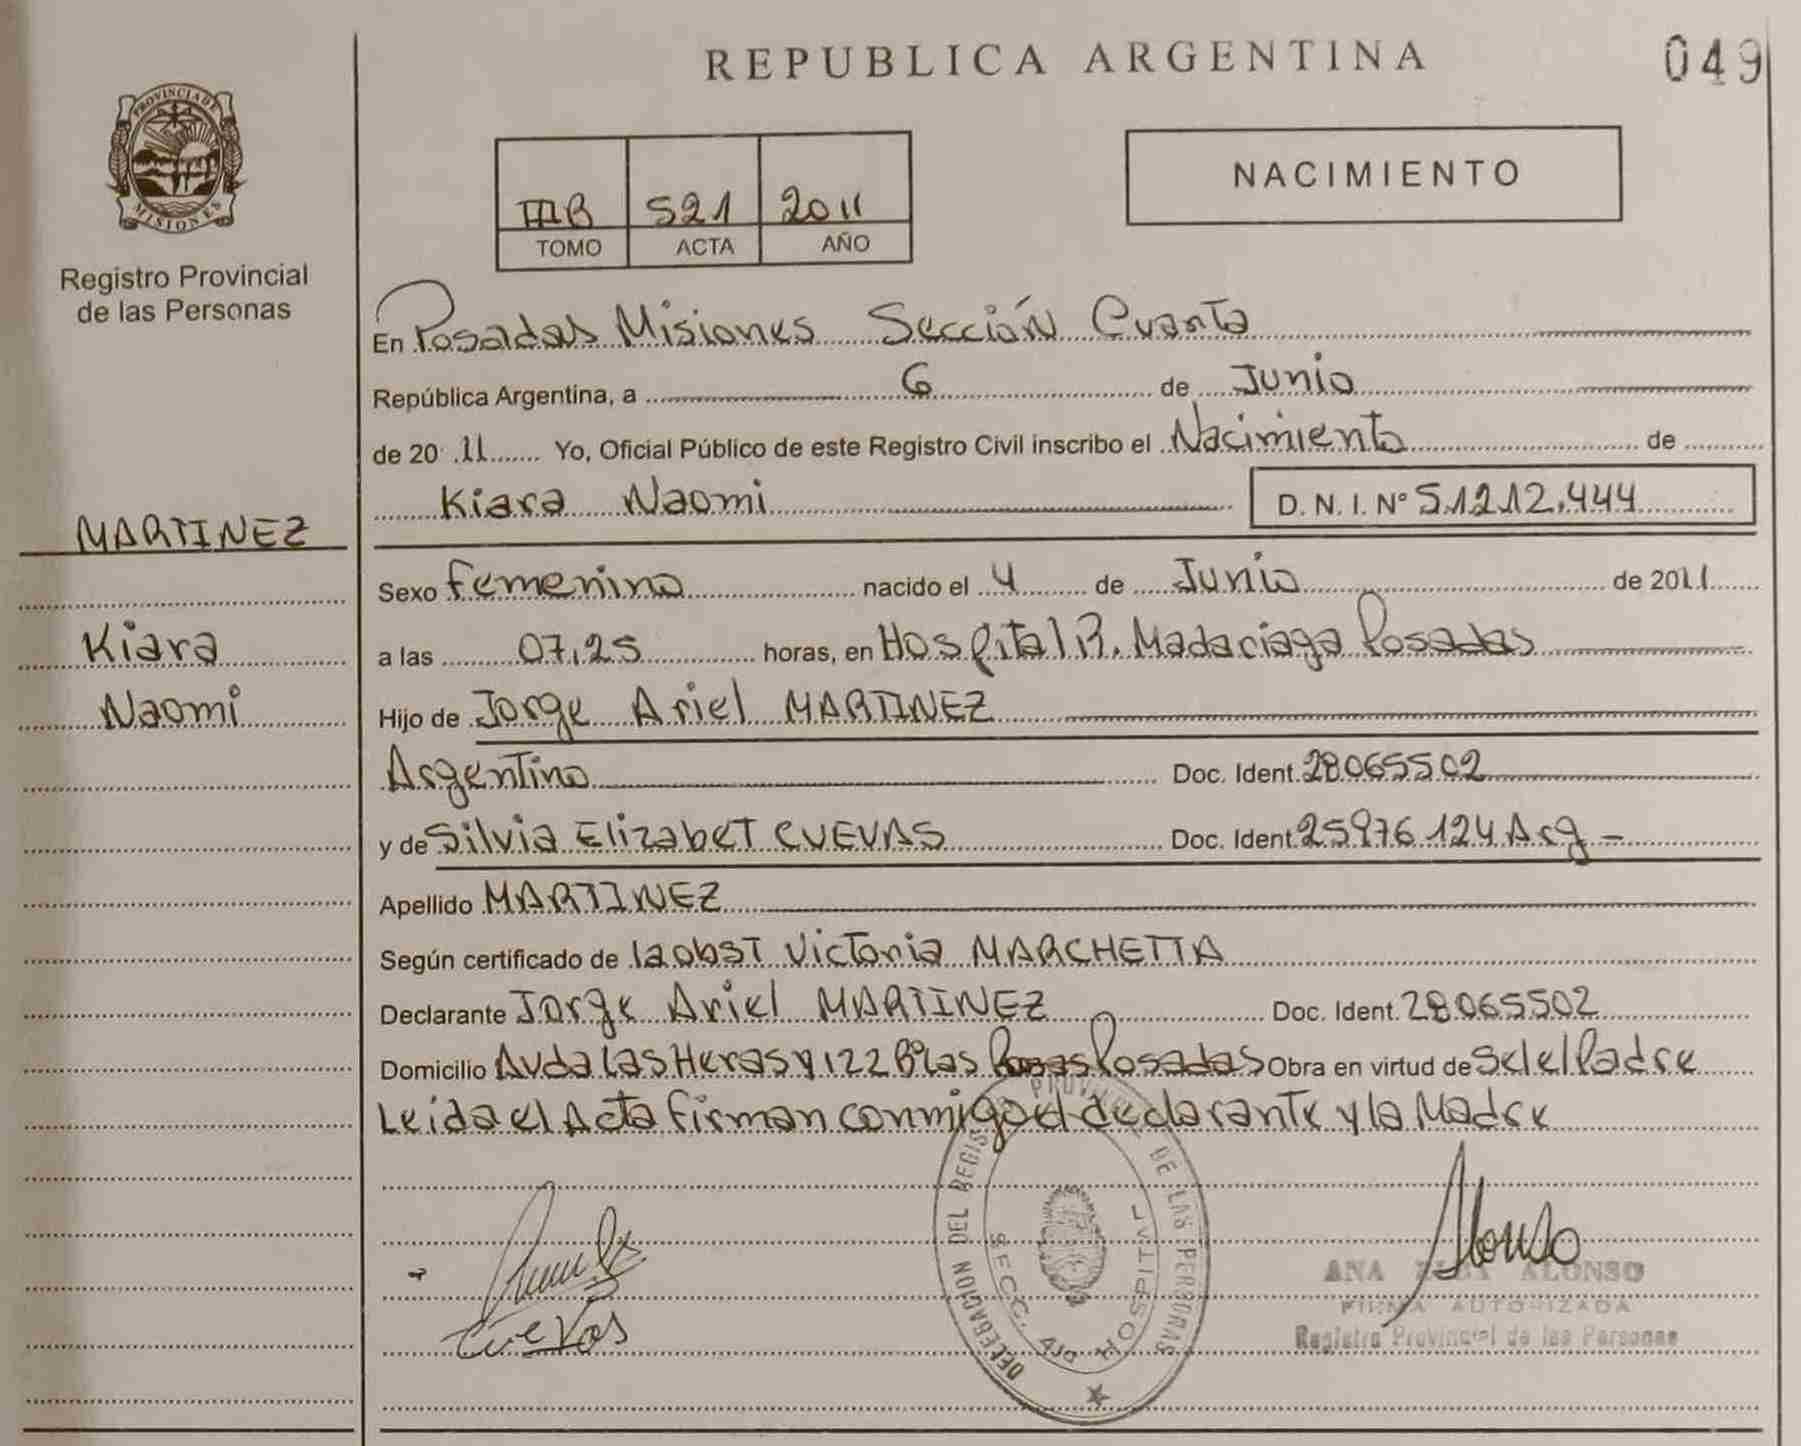 REPUBLICA ARGENTINA
049
PROVINCIA DE MISIONES
Registro Provincial
de las Personas
NACIMIENTO
IIIB 521 2011
TOMO ACTA AÑO
En Posadas Misiones Sección Cuarta
República Argentina, a 6 de Junio
de 2011 Yo, Oficial Público de este Registro Civil inscribo el Nacimiento de
Kiara Naomi D. N. I. Nº 51212.444
MARTINEZ
Kiara
Naomi
Sexo Femenino nacido el 4 de Junio de 2011
a las 07,25 horas, en Hospital R. Madariaga Posadas
Hijo de Jorge Ariel MARTINEZ
Argentino Doc. Ident. 28065502
y de Silvia Elizabet CUEVAS Doc. Ident. 25976124 Arg -
Apellido MARTINEZ
Según certificado de la obst Victoria MARCHETTA
Declarante Jorge Ariel MARTINEZ Doc. Ident. 28065502
Domicilio Avda Las Heras y 122 Bº Las Posadas Obra en virtud de Ser el Padre
Leida el Acta Firman conmigo el declarante y la Madre
DELEGACION DEL REGISTRO PROVINCIAL DE LAS PERSONAS
SECC. 4ta HOSPITAL
Cuevas
Alonso
ANA ALONSO
FIRMA AUTORIZADA
Registro Provincial de las Personas